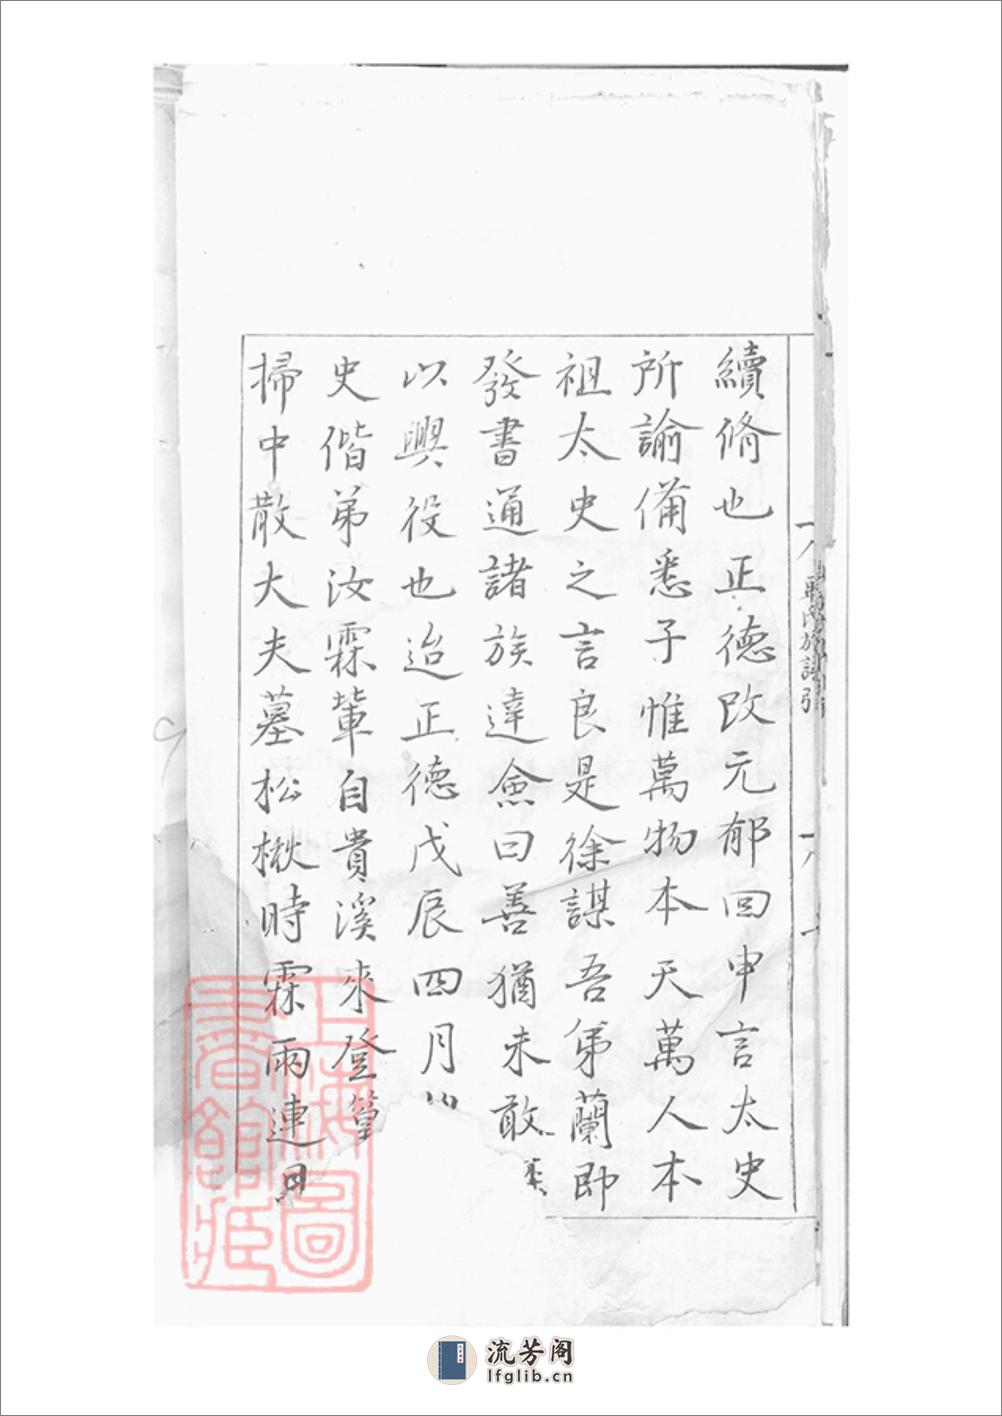 續脩也正德改元郁回申言太史
所諭備悉予惟萬物本天萬人本
祖太史之言良是徐謀吾弟蘭即
發書通諸族達僉曰善猶未敢
以興役也迨正德戊辰四月
史偕弟汝霖輩自貴溪來登篁
掃中散大夫墓松楸時霖雨連月
氏族譜引
上海圖書館藏
流芳阁
lfglib.cn